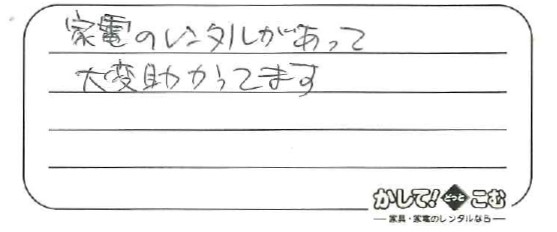 家電のレンタルがあって
大変助かってます
かして!どっとこむ
家具・家電のレンタルなら